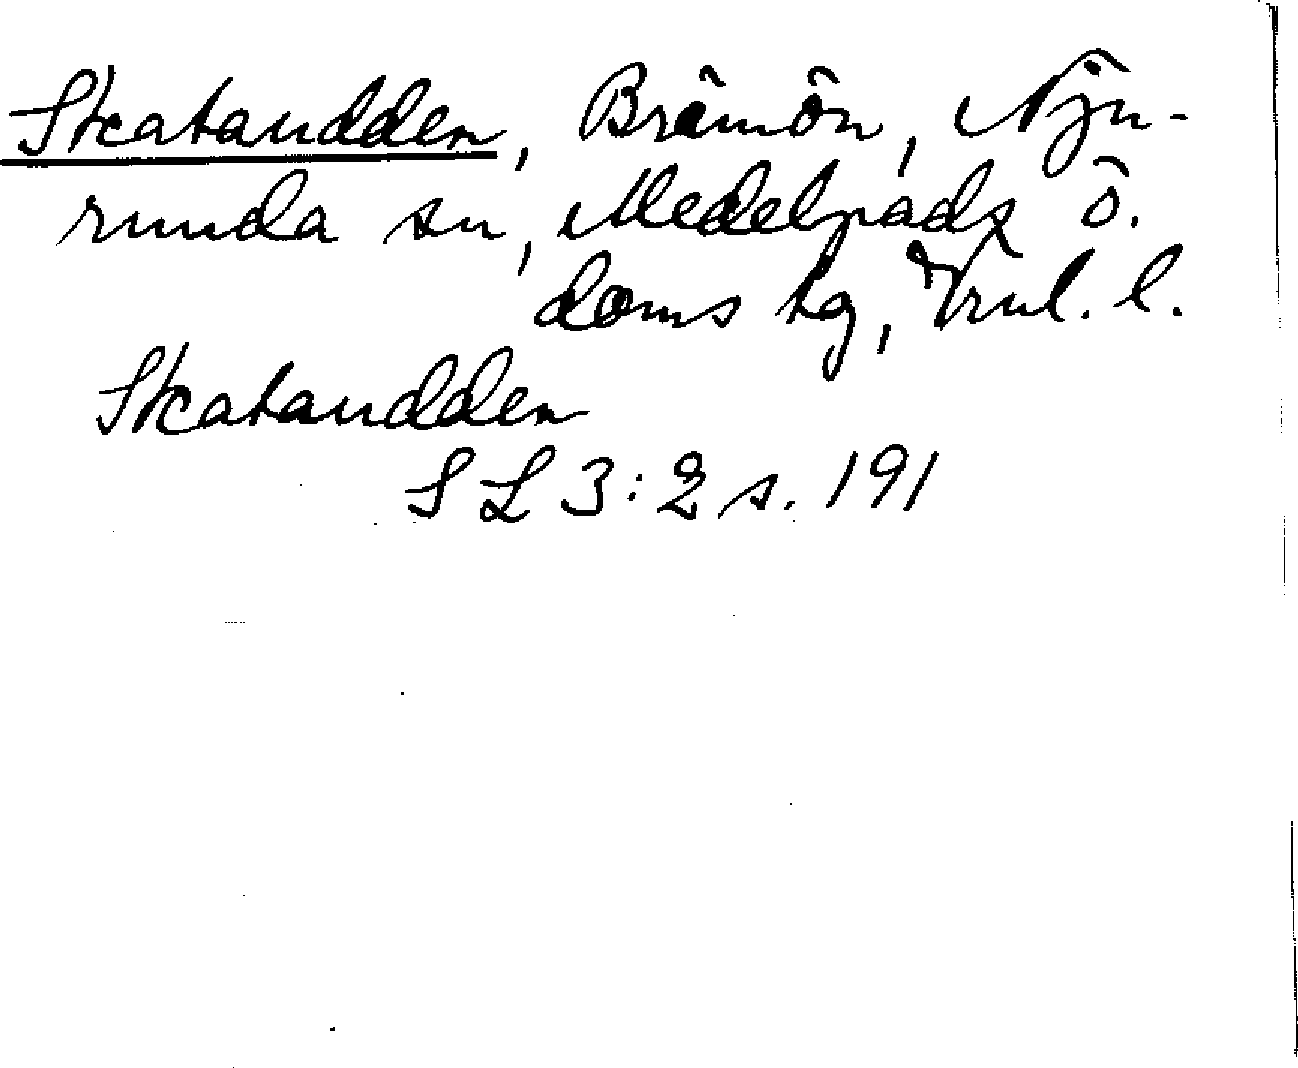 Skataudden, Brämön, Nju-
runda sn, Medelpads ö.
doms hg, Vnl. l.
Skataudden
SL 3:2 s. 191